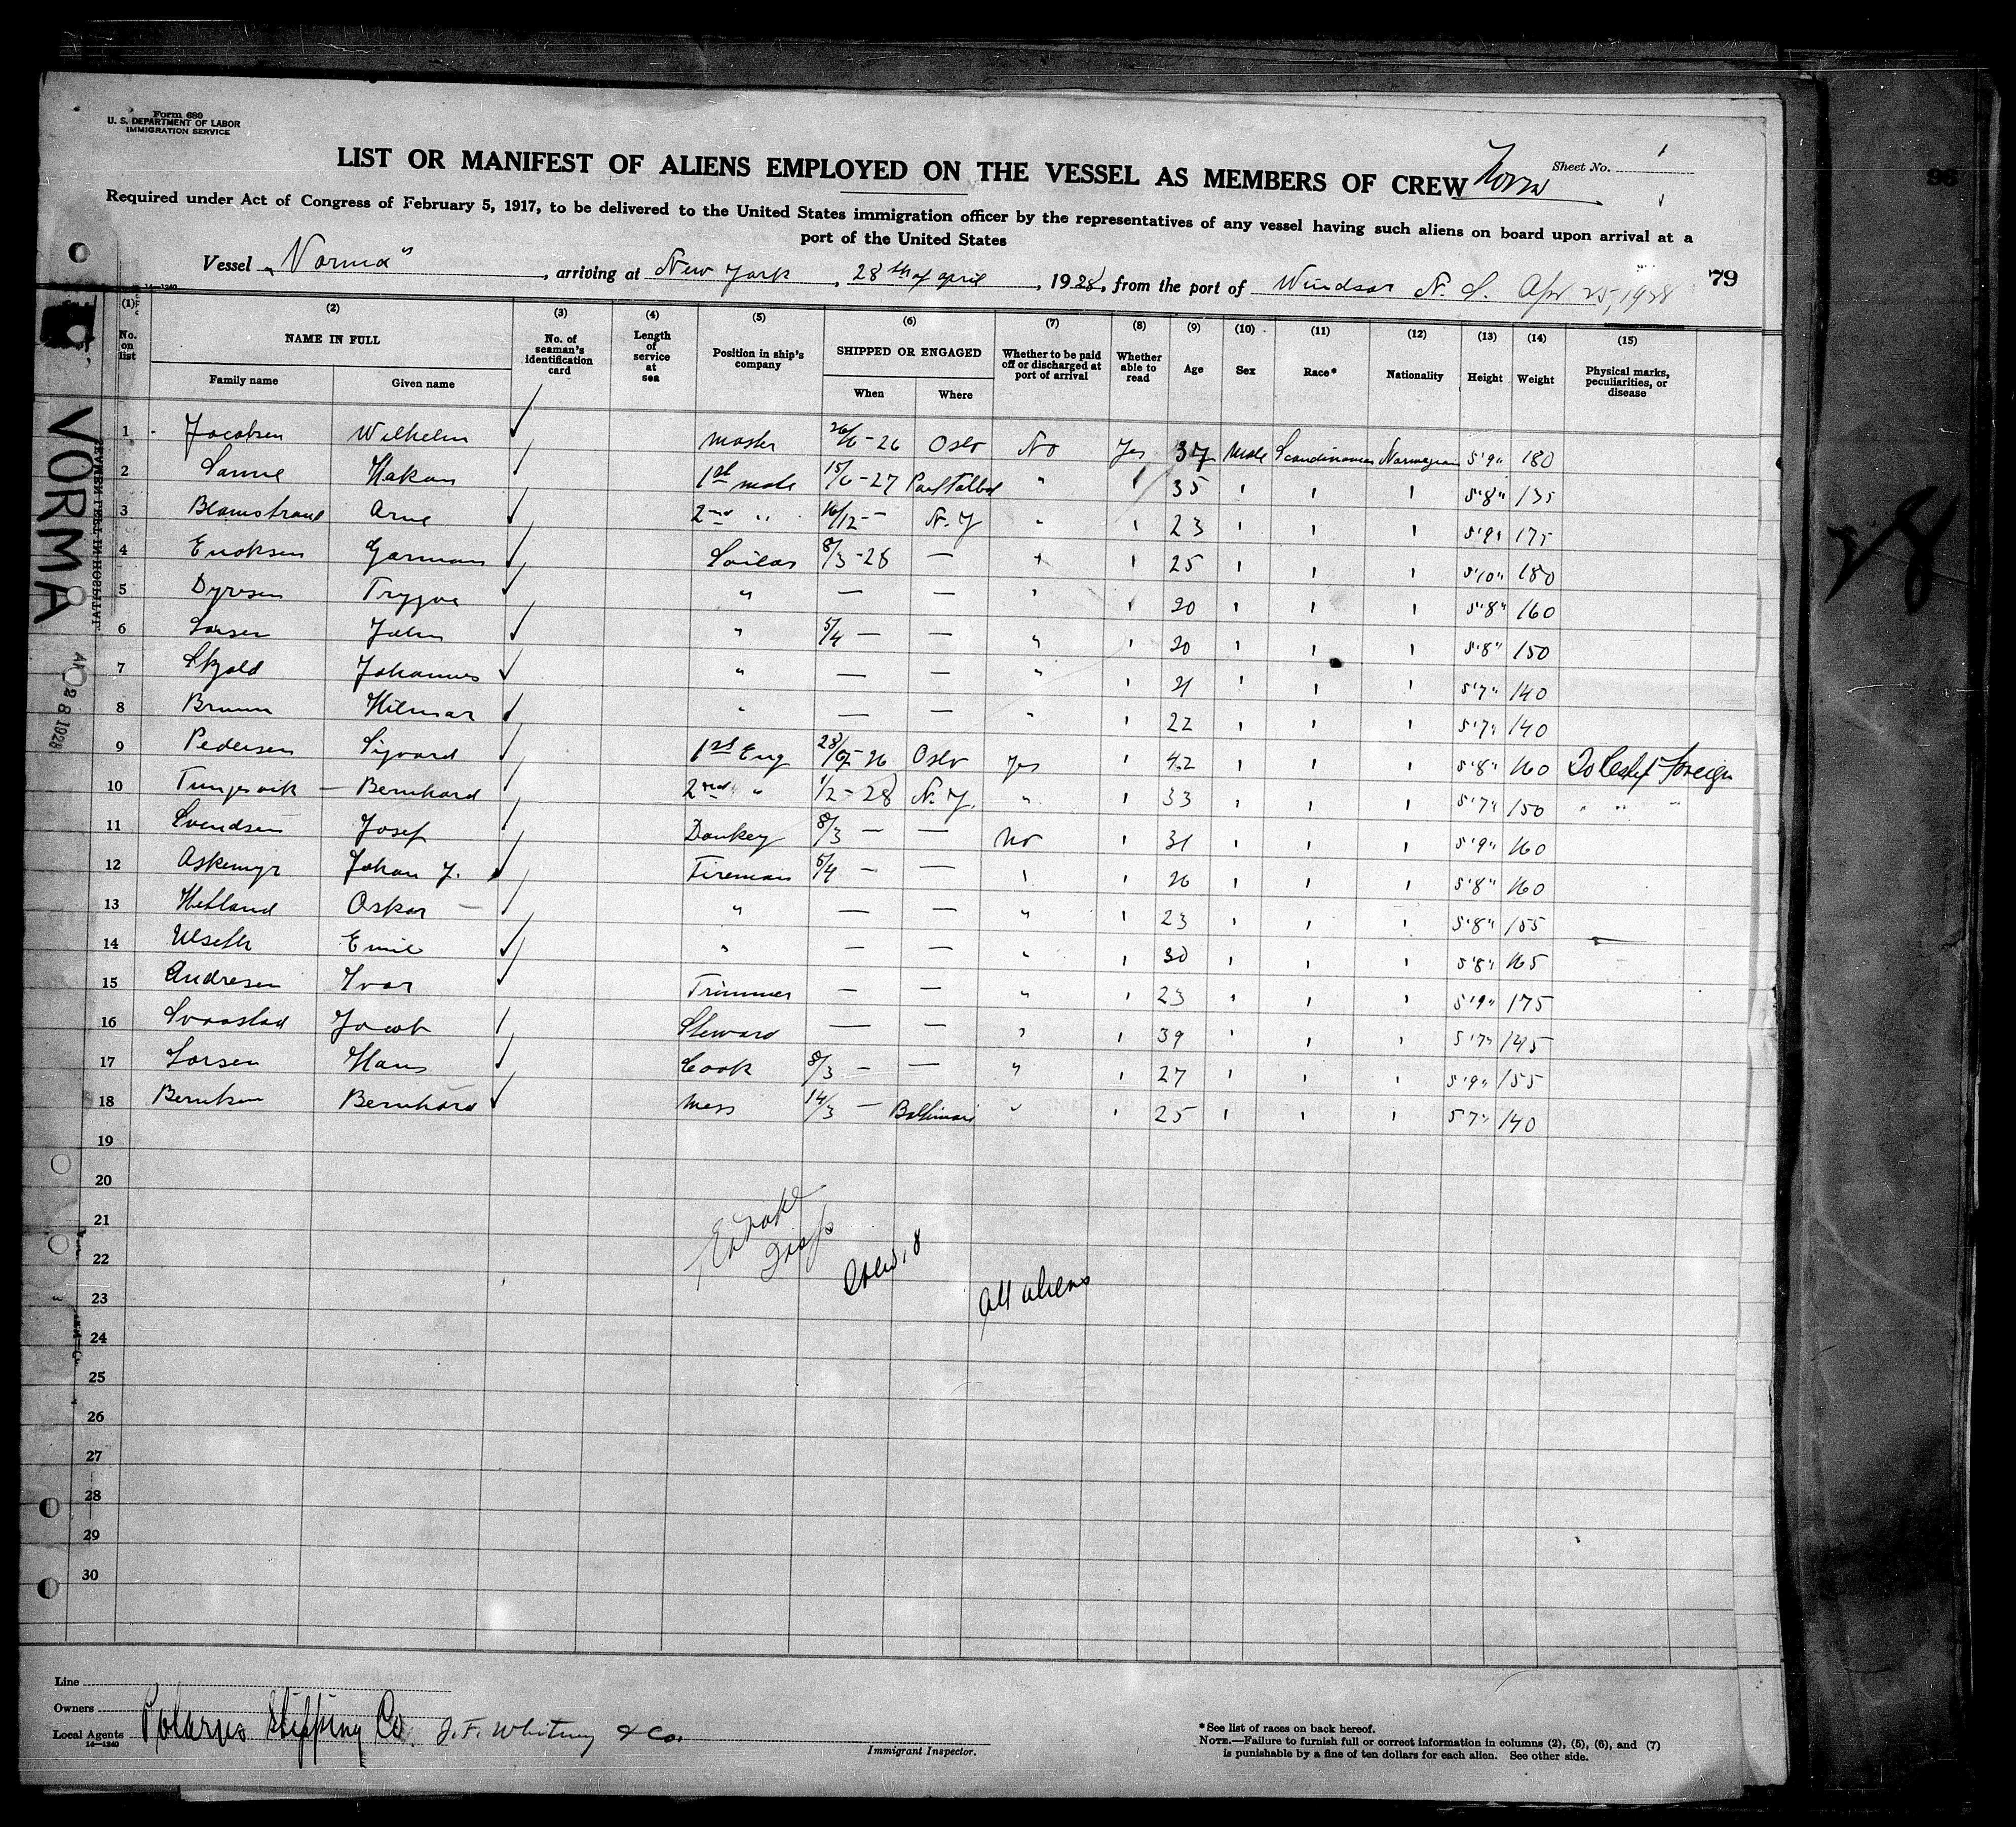 Form 680
U. S. DEPARTMENT OF LABOR
IMMIGRATION SERVICE
LIST OR MANIFEST OF ALIENS EMPLOYED ON THE VESSEL AS MEMBERS OF CREW
Sheet No. 1
Required under Act of Congress of February 5, 1917, to be delivered to the United States immigration officer by the representatives of any vessel having such aliens on board upon arrival at a
port of the United States
Vessel „Norma", arriving at New York, 28th of april, 1928, from the port of Windsor N. S. Apr 25, 1928
79
96
14—1240
(1) No. on list (2) NAME IN FULL Family name Given name (3) No. of seaman's identification card (4) Length of service at sea (5) Position in ship's company (6) SHIPPED OR ENGAGED When Where (7) Whether to be paid off or discharged at port of arrival (8) Whether able to read (9) Age (10) Sex (11) Race* (12) Nationality (13) Height (14) Weight (15) Physical marks, peculiarities, or disease
1 Jacobsen Wilhelm ✓ master 26/6-26 Oslo No Yes 37 Male Scandinavian Norwegian 5'9" 180
2 Sanne Hakon ✓ 1st mate 15/6-27 " ' 35 ' ' ' 5'8" 135
3 Arne ✓ 2nd " 16/12 — N.Y " ' 23 ' ' ' 5'9" 175
4 Garman ✓ Sailor 8/3-28 — " ' 25 ' ' ' 5'10" 180
5 Dyresen Trygve ✓ " — — ' ' 20 ' ' ' 5'8" 160
6 Larsen John ✓ " 5/4 — — " ' 20 ' ' ' 5'8" 150
7 Skjold Johannes ✓ " — — " ' 21 ' ' ' 5'7" 140
8 Bruun Hilmar ✓ " — — " ' 22 ' ' ' 5'7" 140
9 Pedersen Sigvard ✓ 1st Eng Oslo Yes ' 42 ' ' ' 5'8" 160 Foreign
10 Tungesvik — Bernhard 2nd " 1/2-28 N.Y. " ' 33 ' ' ' 5'7" 150 " " "
11 Svendsen Josef Donkey 8/3 — — No ' 31 ' ' ' 5'9" 160
12 Askemyr Johan J. ✓ Fireman 5/4 — — ' ' 26 ' ' ' 5'8" 160
13 Hetland Oskar — " — — " ' 23 ' ' ' 5'8" 155
14 Ulseth Emil ✓ " — — " ' 30 ' ' ' 5'8" 165
15 Andresen Ivar ✓ Trimmer — — " ' 23 ' ' ' 5'9" 175
16 Svaastad Jacob Steward — — ' ' 39 ' ' ' 5'7" 145
17 Larsen Hans ✓ Cook 8/3 — — " ' 27 ' ' ' 5'9" 155
18 Berntsen Bernhard ✓ Mess 14/3 — Baltimore " ' 25 ' ' ' 5'7" 140
19
20
21
22
23
24
25
26
27
28
29
30
Crew 18
All aliens
VORMA
28 1928
Line
Owners
Local Agents Polarus Shipping Co. J. F. Whitney & Co.
14—1240
Immigrant Inspector.
*See list of races on back hereof.
NOTE.—Failure to furnish full or correct information in columns (2), (5), (6), and (7)
is punishable by a fine of ten dollars for each alien. See other side.